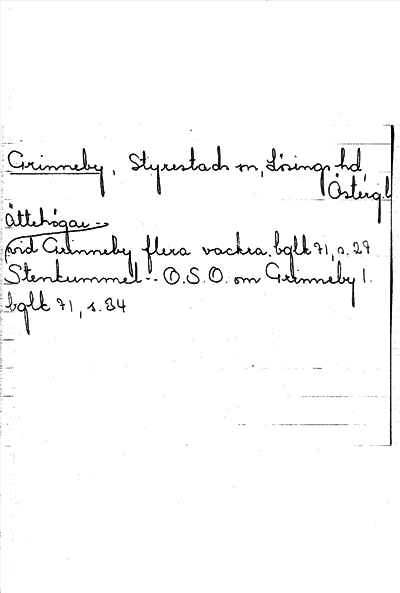 Grinneby, Styrestads sn, Lösings hd
Östergl
Ättehögar --
vid Grinneby flera vackra. bglt 71, s. 27
Stenkummel -- O.S.O. om Grinneby 1.
bglt 71, s. 34